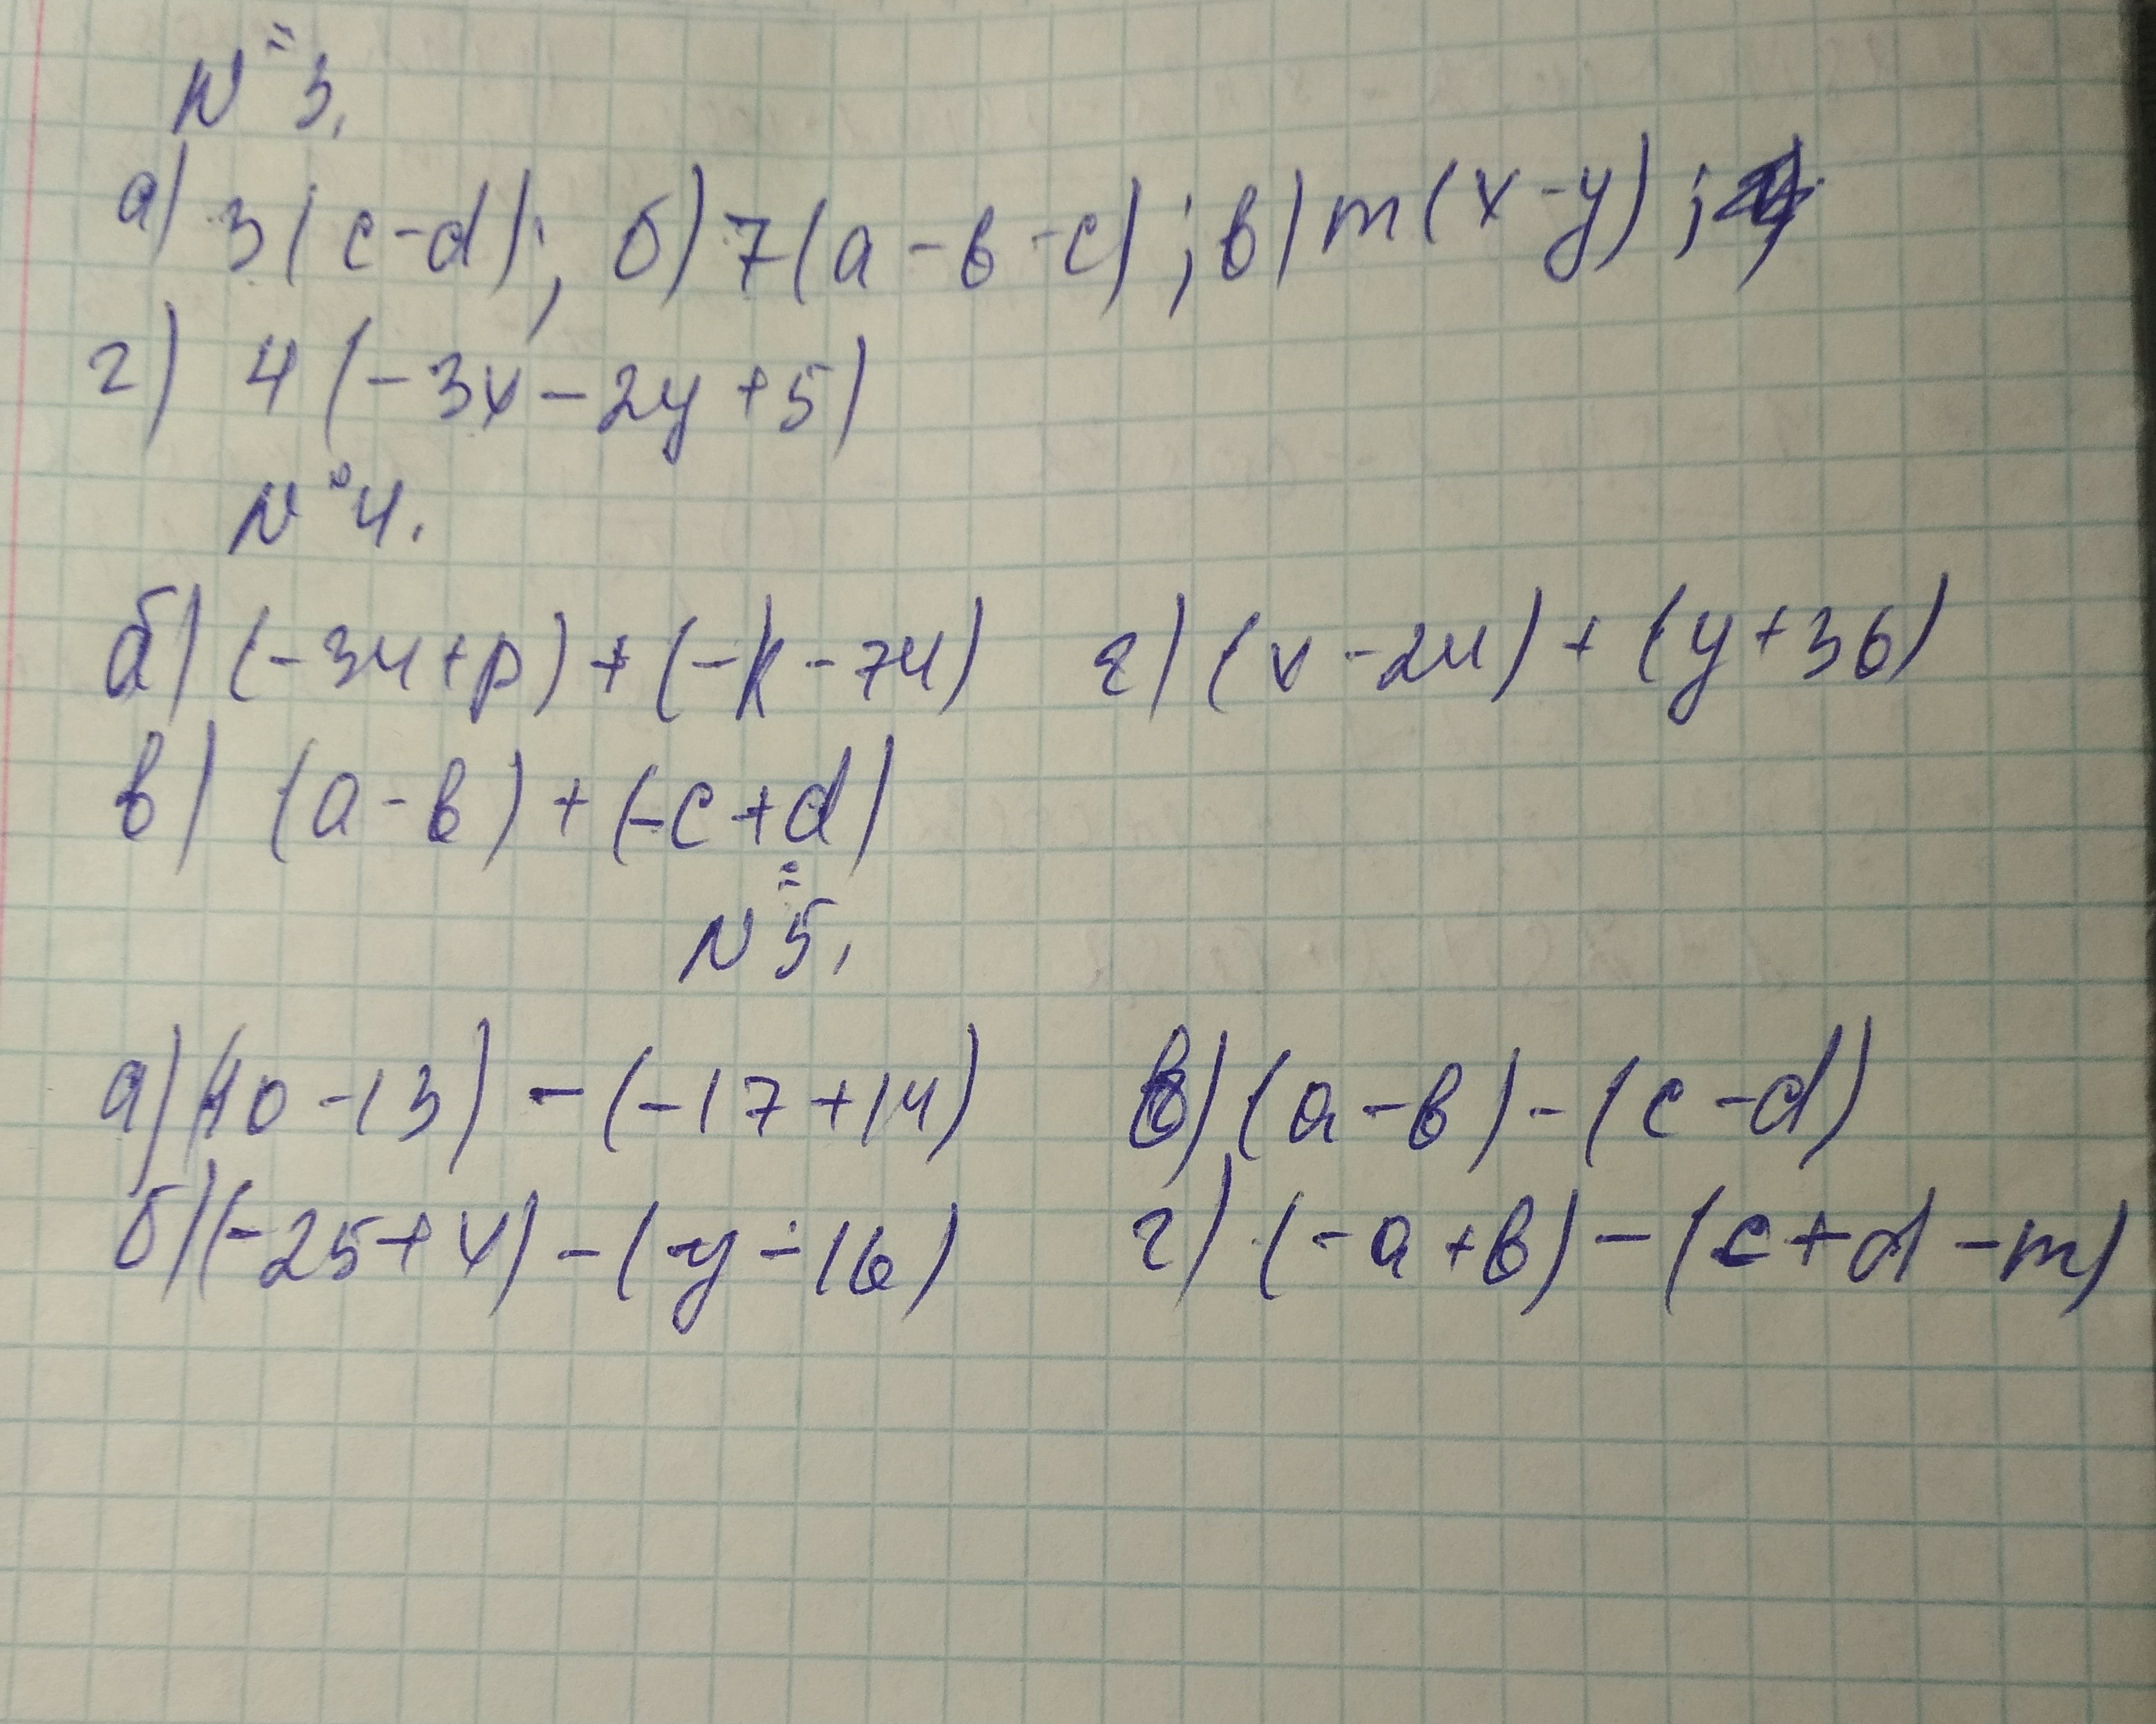 №3.
а) 3(c-d); б) 7(a-b-c); в) m(x-y);
г) 4(-3x-2y+5)
№4.
б) (-34+p)+(-k-74) г) (x-24)+(y+36)
в) (a-b)+(-c+d)
№5.
а) (40-13)-(-17+14) в) (a-b)-(c-d)
б) (-25+x)-(-y-16) г) (-a+b)-(c+d-m)